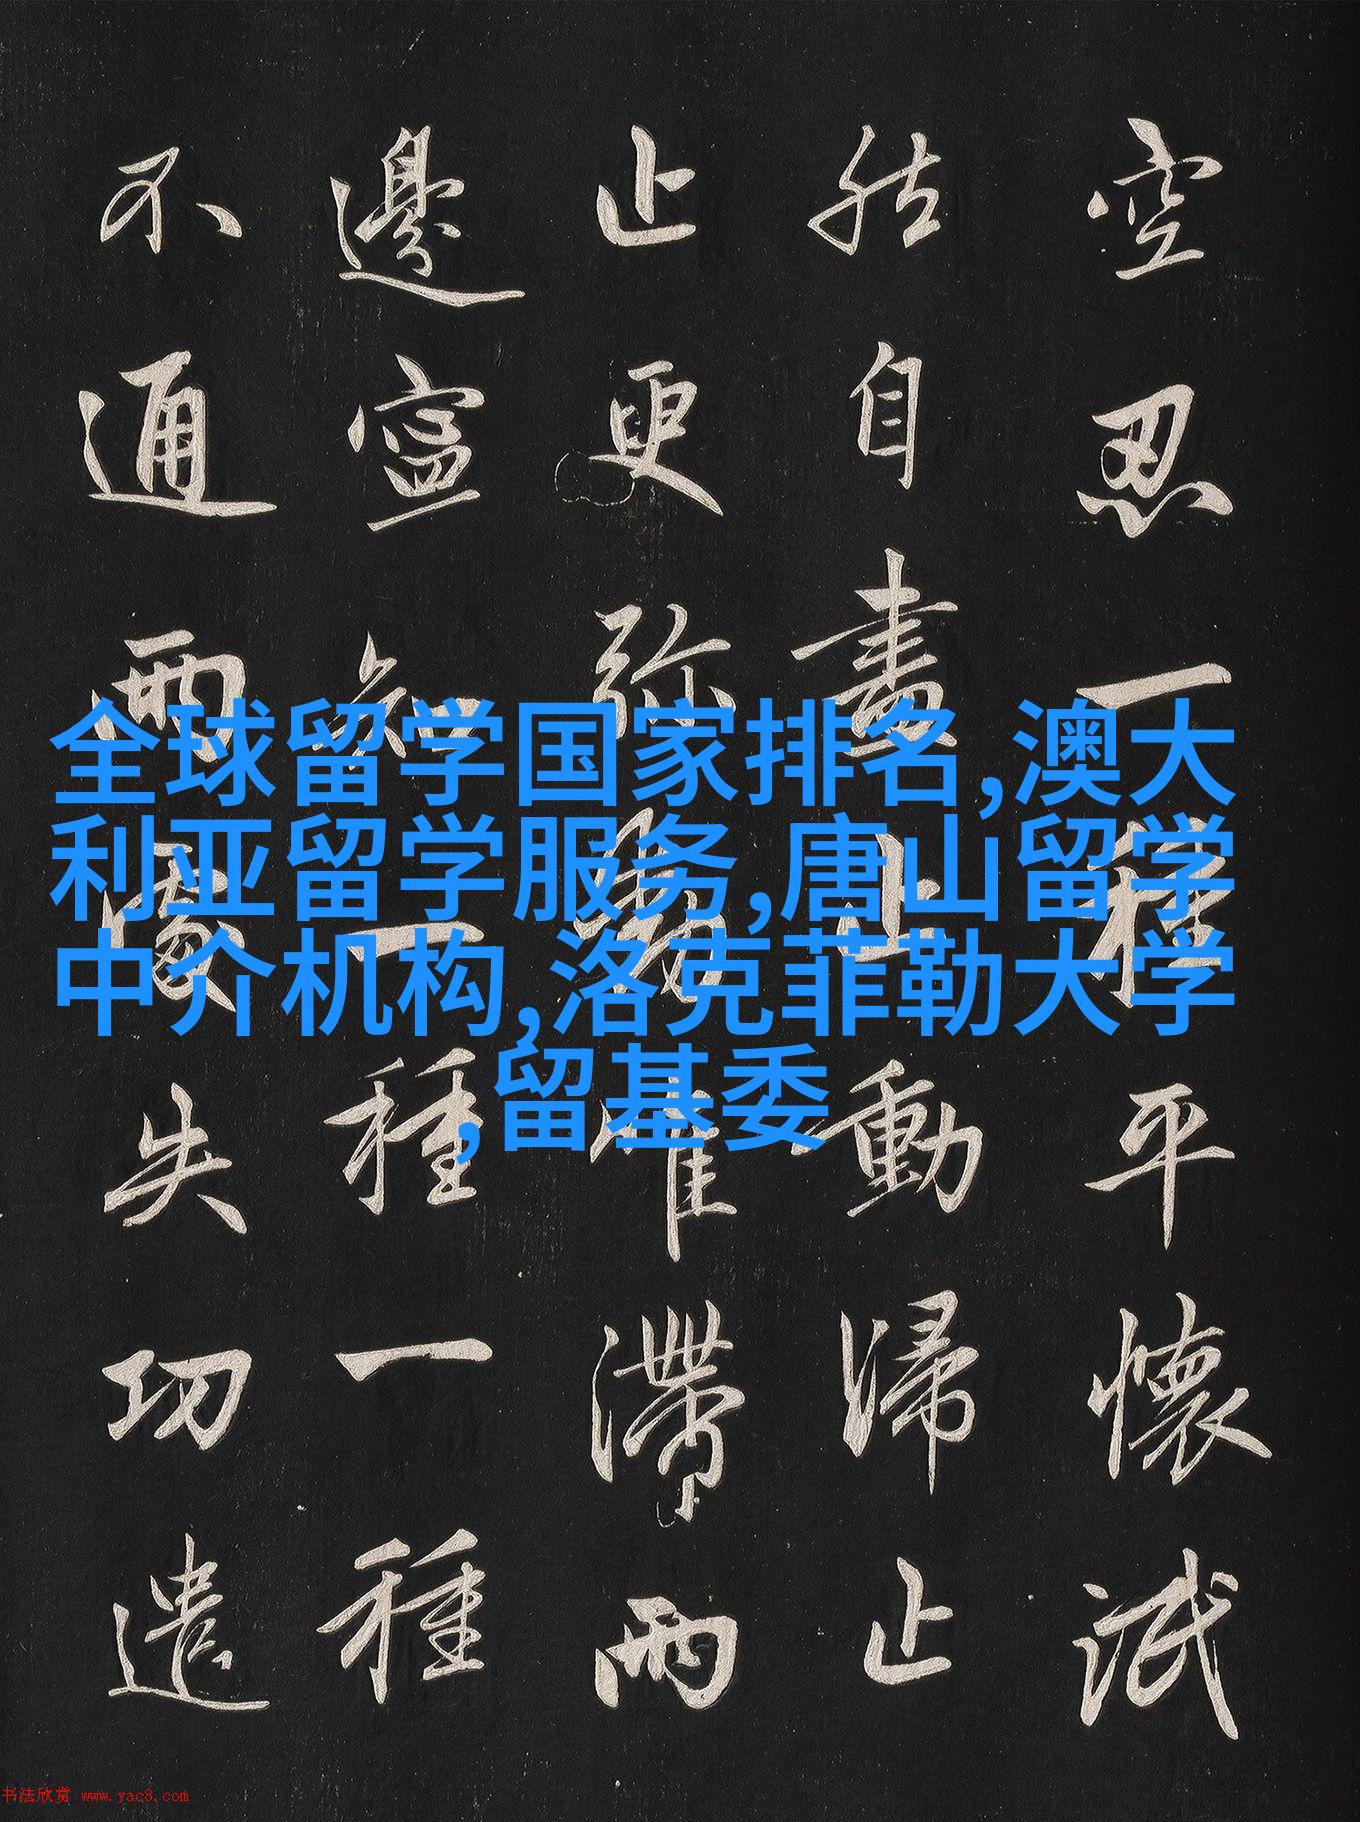 空忍一種平懷泯
然自盡止動歸止
止更彌動唯滯兩
邊寧知一種一種
不通兩處失功遣
全球留学国家排名,澳大
利亚留学服务,唐山留学
中介机构,洛克菲勒大学
,留基委
书法欣赏 www.yac8.com